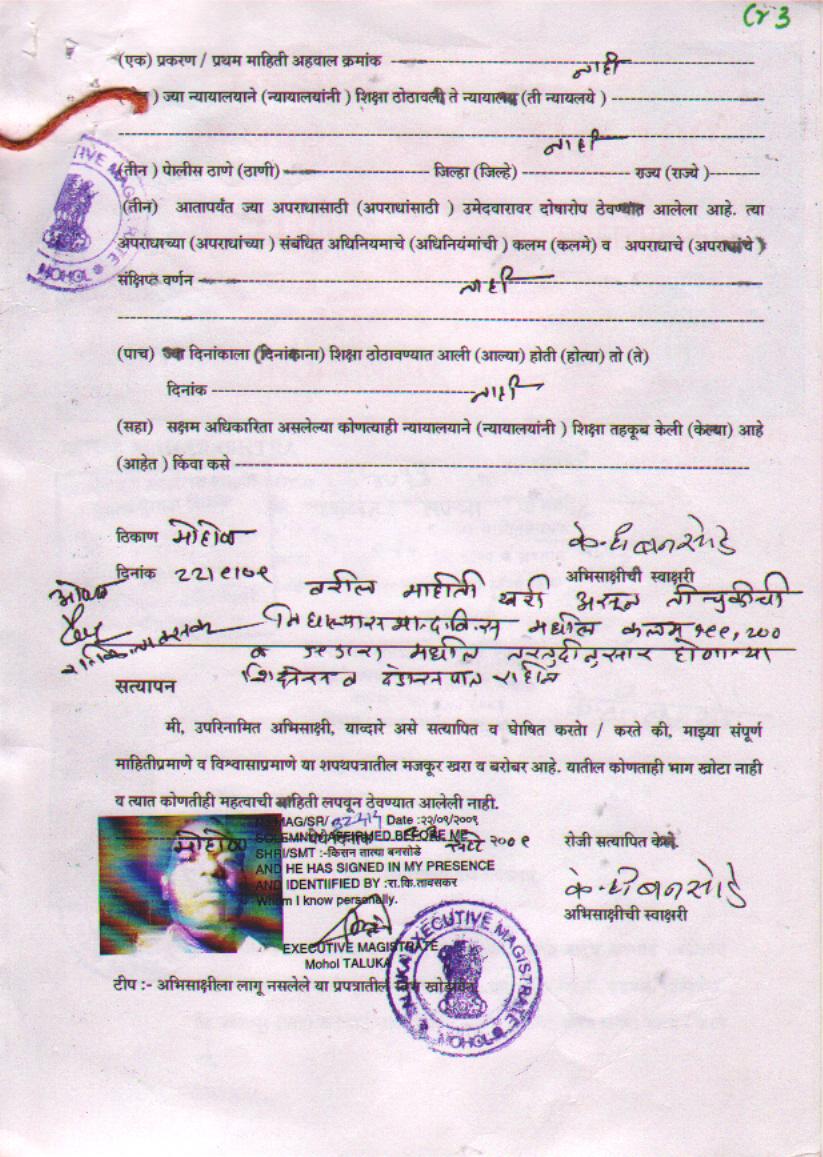 3
(एक) प्रकरण / प्रथम माहिती अहवाल क्रमांक नाही
) ज्या न्यायालयाने (न्यायालयांनी ) शिक्षा ठोठावली ते न्यायालय (ती न्यायलये )
नाही
(तीन ) पोलीस ठाणे (ठाणी) जिल्हा (जिल्हे) राज्य (राज्ये)
(तीन) आतापर्यंत ज्या अपराधासाठी (अपराधांसाठी ) उमेदवारावर दोषारोप ठेवण्यात आलेला आहे. त्या
अपराधाच्या (अपराधांच्या ) संबंधित अधिनियमाचे (अधिनियमांची ) कलम (कलमे) व अपराधाचे (अपराधांचे )
संक्षिप्त वर्णन नाही
(पाच) ज्या दिनांकाला (दिनांकाना) शिक्षा ठोठावण्यात आली (आल्या) होती (होत्या) तो (ते)
दिनांक नाही
(सहा) सक्षम अधिकारिता असलेल्या कोणत्याही न्यायालयाने (न्यायालयांनी ) शिक्षा तहकूब केली (केल्या) आहे
(आहेत ) किंवा कसे
ठिकाण मोहोळ
के. ता. बनसोडे
दिनांक २२/९/०९
अभिसाक्षीची स्वाक्षरी
वरील माहीती खरी असून ती चुकीची
निघाल्यास भा.द.वि.स मधील कलम १९९,२००
मधील तरतुदीनुसार होणाऱ्या
शिक्षेस व दंडास पात्र राहील
सत्यापन
मी, उपरिनामित अभिसाक्षी, याव्दारे असे सत्यापित व घोषित करतो / करते की, माझ्या संपूर्ण
माहितीप्रमाणे व विश्वासाप्रमाणे या शपथपत्रातील मजकूर खरा व बरोबर आहे. यातील कोणताही भाग खोटा नाही
व त्यात कोणतीही महत्वाची माहिती लपवून ठेवण्यात आलेली नाही.
MAG/SR/ Date :२२/०९/२००९
SOLEMNLY AFFIRMED BEFORE ME
मोहोळ येथे दिनांक सप्टेंबर २००९ रोजी सत्यापित केले.
SHRI/SMT :-किसन तात्या बनसोडे
AND HE HAS SIGNED IN MY PRESENCE
AND IDENTIIFIED BY :रा.कि.ताबसकर
Whom I know personally.
के. ता. बनसोडे
अभिसाक्षीची स्वाक्षरी
EXECUTIVE MAGISTRATE
Mohol TALUKA
टीप :- अभिसाक्षीला लागू नसलेले या प्रपत्रातील
TALUKA EXECUTIVE MAGISTRATE
MOHOL